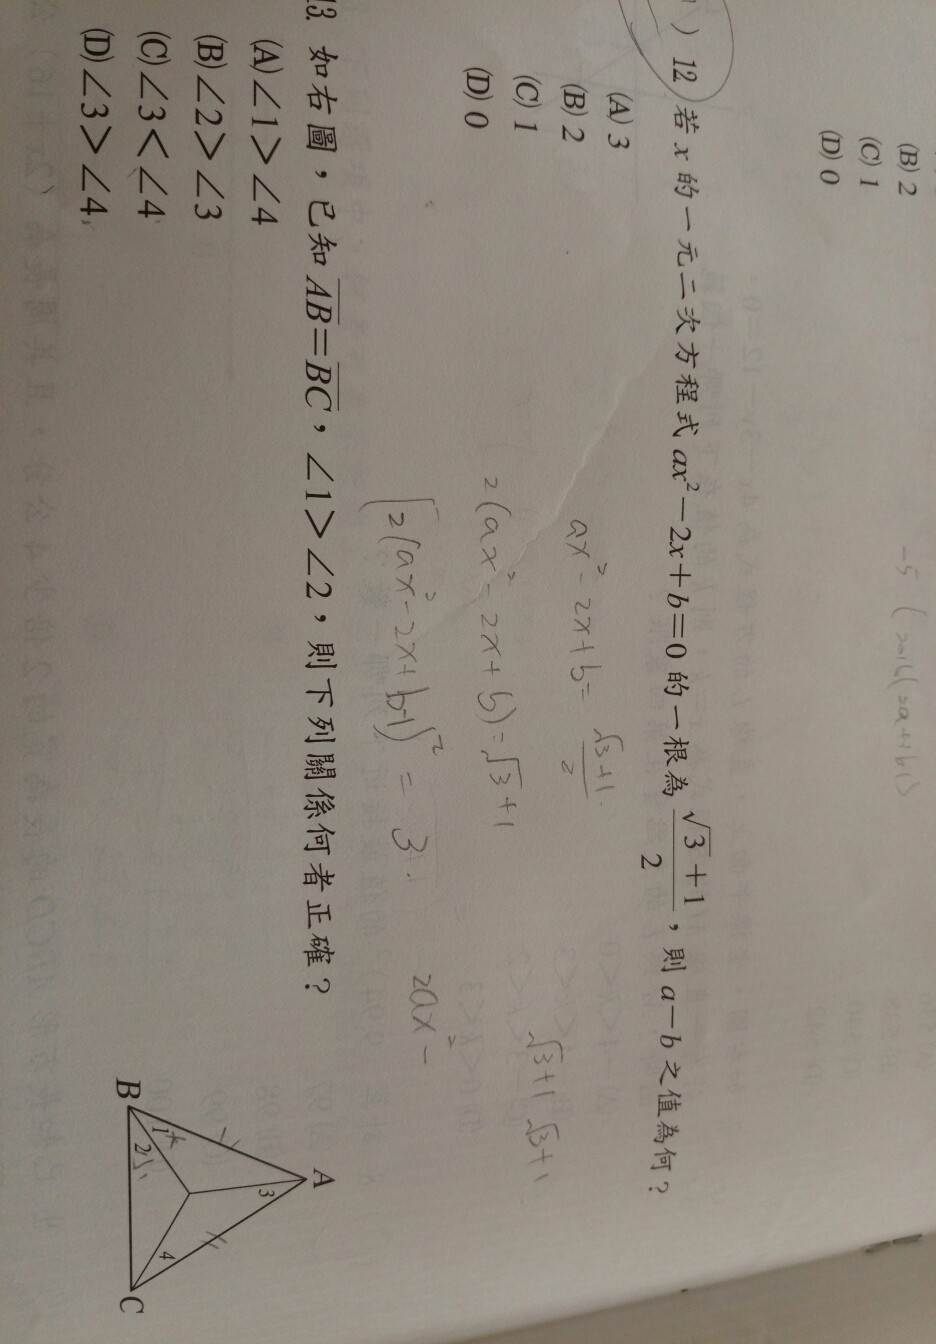 (B) 2
(C) 1
(D) 0
) 12 若 x 的一元二次方程式 ax²－2x＋b＝0 的一根為 (√3＋1)/2，則 a－b 之值為何？
(A) 3
(B) 2
(C) 1
(D) 0
ax² - 2x + b = (√3+1)/2
2(ax² - 2x + b) = √3+1
√3+1 √3+1
2ax² -
13. 如右圖，已知 AB＝BC，∠1＞∠2，則下列關係何者正確？
(A)∠1＞∠4
(B)∠2＞∠3
(C)∠3＜∠4
(D)∠3＞∠4
A
3
1
2
4
B
C